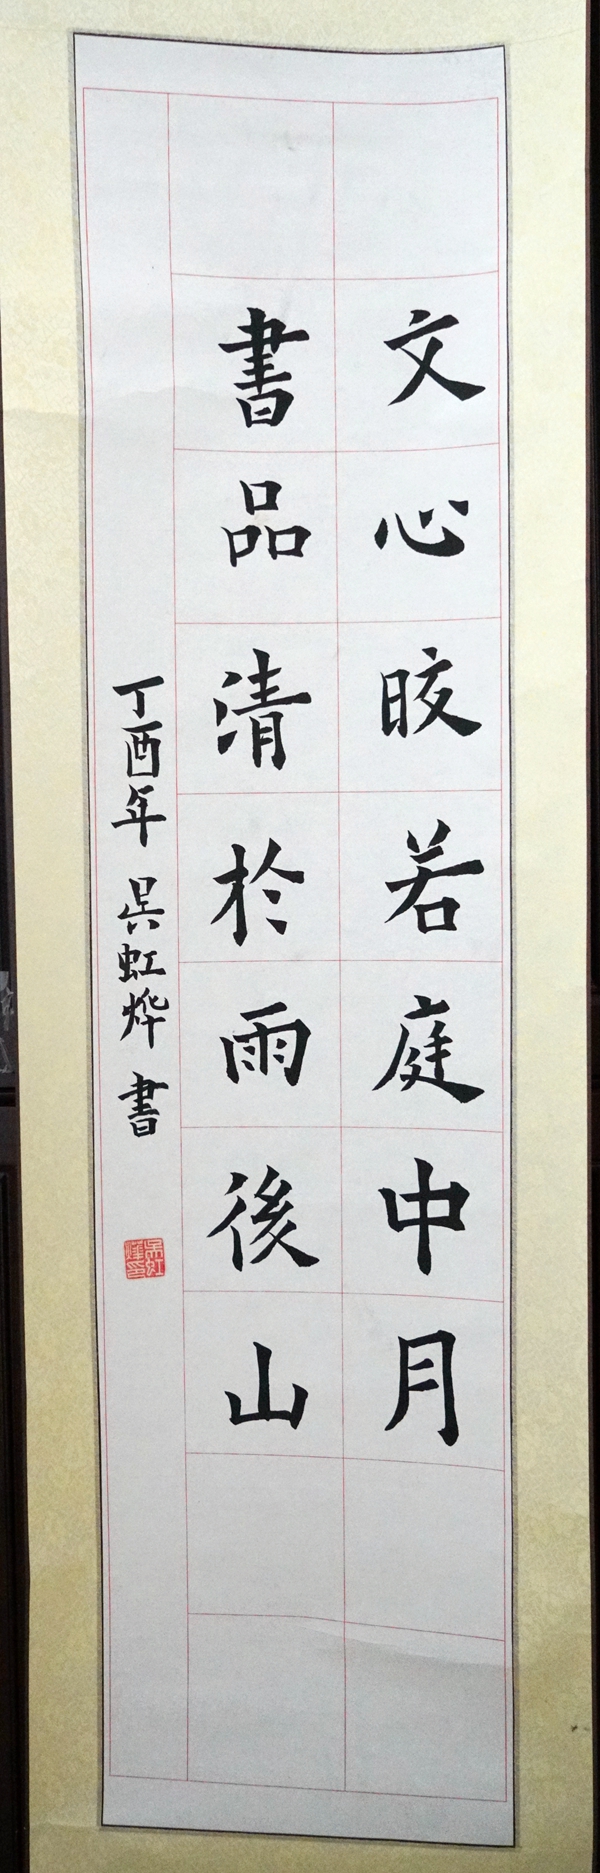 文心晈若庭中月
書品清於雨後山
丁酉年 吴虹烨 書
吴虹燁印